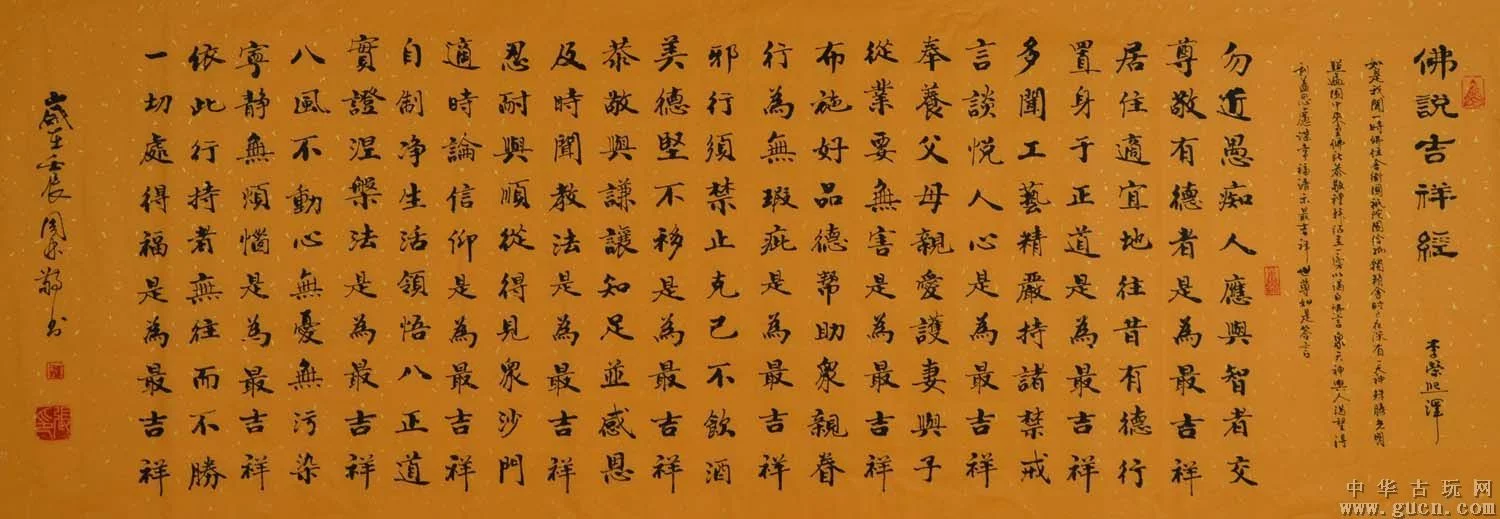 佛說吉祥經
李榮熙譯
如是我聞一時佛住舍衛國祇陀園給孤獨精舍時在深有一天神殊勝光圓
照遍園中來至佛所恭敬禮拜站立一旁以偈白佛言眾天神與人渴望得
利益思慮求幸福請示最吉祥世尊如是答言
勿近愚痴人應與智者交
尊敬有德者是為最吉祥
居住適宜地往昔有德行
置身于正道是為最吉祥
多聞工藝精嚴持諸禁戒
言談悅人心是為最吉祥
奉養父母親愛護妻與子
從業要無害是為最吉祥
布施好品德幫助眾親眷
行為無瑕疵是為最吉祥
邪行須禁止克己不飲酒
美德堅不移是為最吉祥
恭敬與謙讓知足並感恩
及時聞教法是為最吉祥
忍耐與順從得見眾沙門
適時論信仰是為最吉祥
自制净生活領悟八正道
實證涅槃法是為最吉祥
八風不動心無憂無污染
寧靜無煩惱是為最吉祥
依此行持者無往而不勝
一切處得福是為最吉祥
歲在壬辰敬書
中华古玩网
www.gucn.com